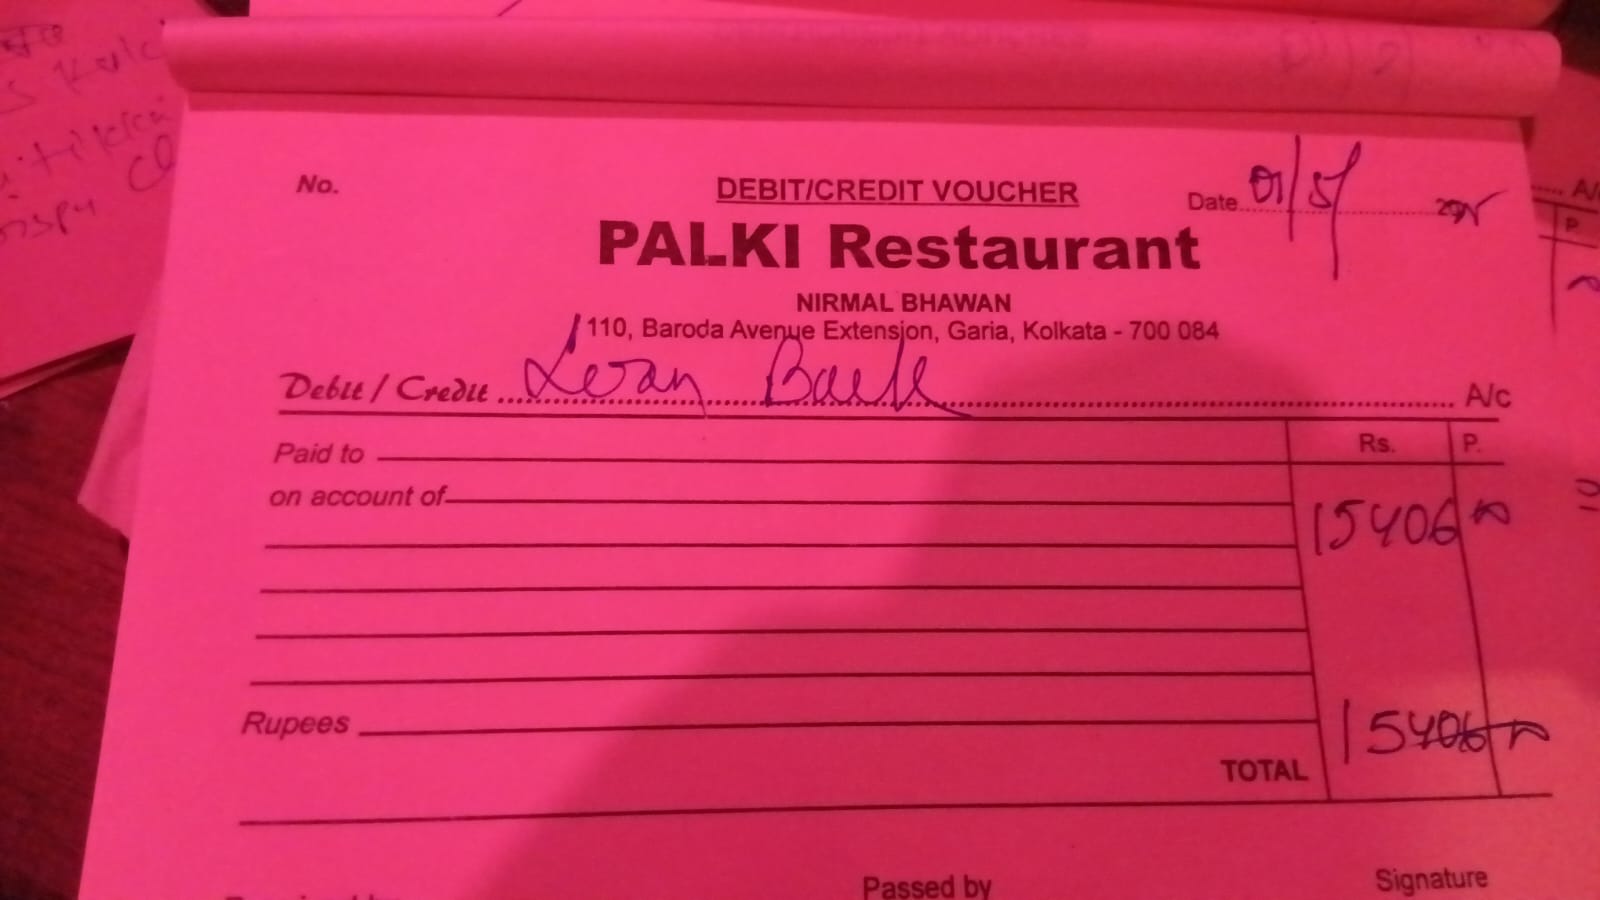 No.
DEBIT/CREDIT VOUCHER
Date 01/5/ 20
PALKI Restaurant
NIRMAL BHAWAN
110, Baroda Avenue Extension, Garia, Kolkata - 700 084
Debit / Credit Loan Back A/c
Rs. P.
Paid to
on account of
15406
Rupees
15406
TOTAL
Passed by
Signature